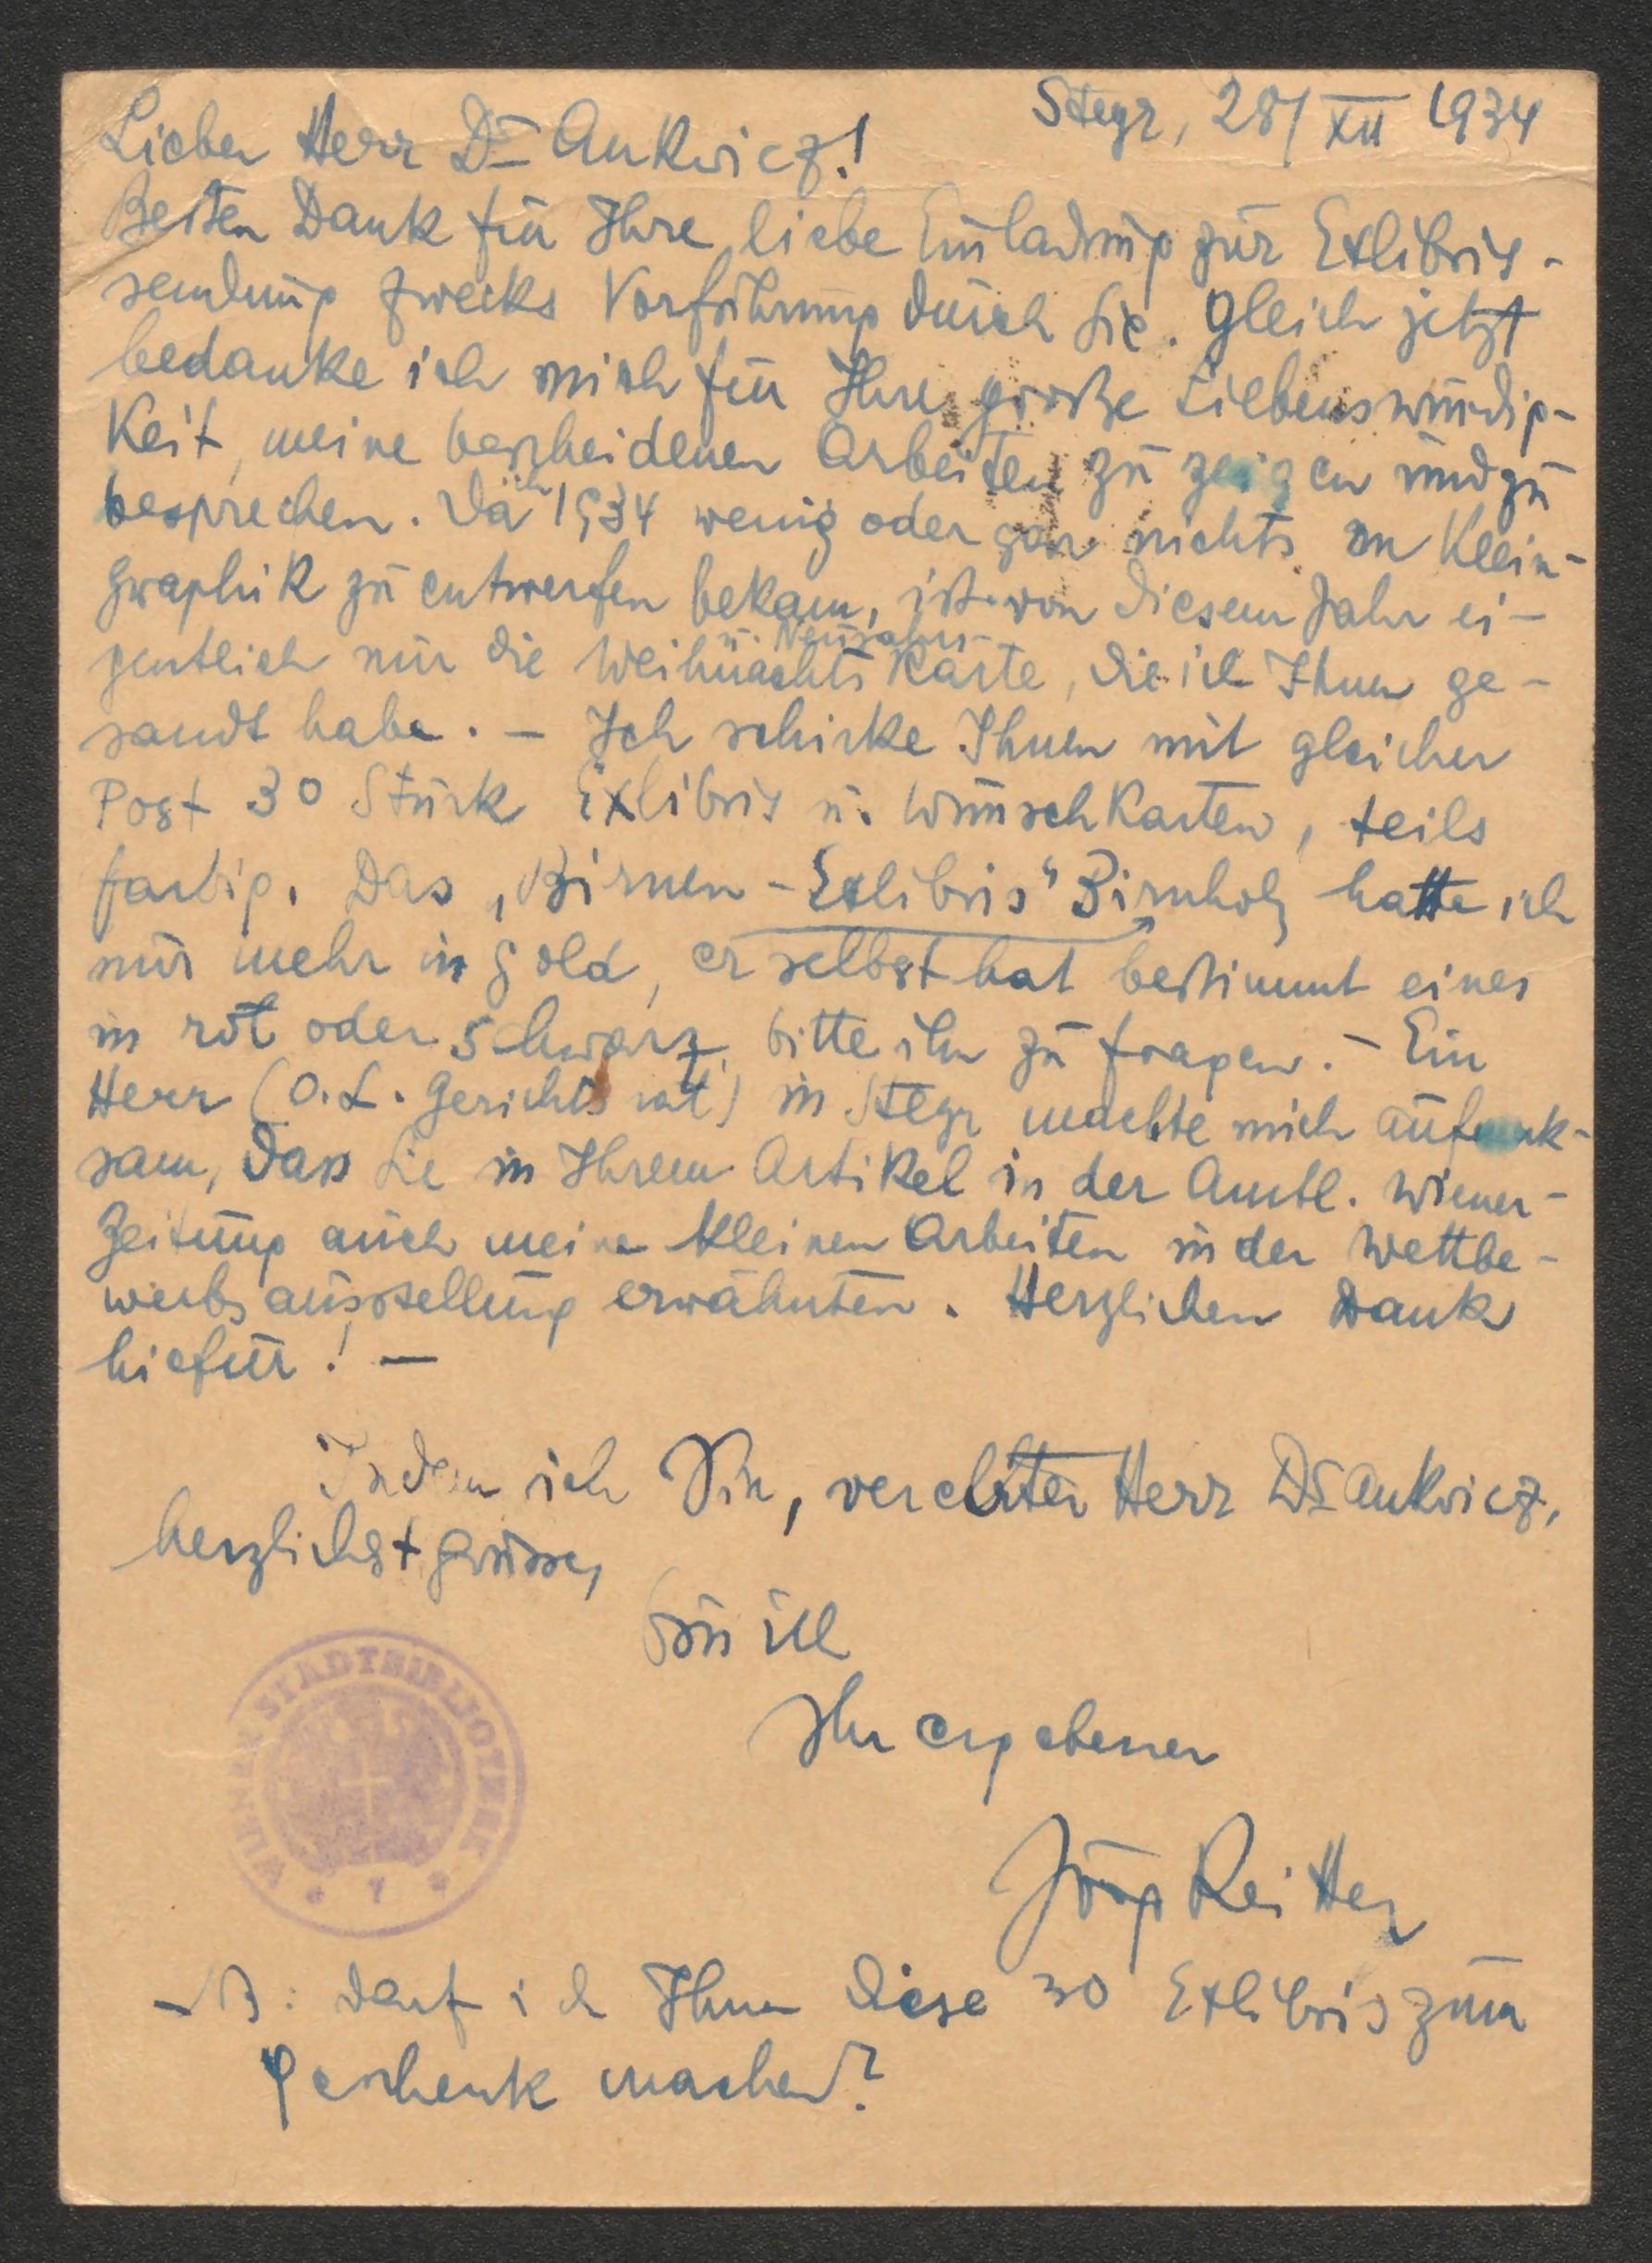 Steyr, 28/XII 1934
Lieber Herr Dr Ankwicz!
Besten Dank für Ihre liebe Einladung zur Exlibris-
sendung zwecks Vorführung durch Sie. Gleich jetzt
bedanke ich mich für Ihre große Liebenswürdig-
keit, meine bescheidenen Arbeiten zu zeigen und zu
besprechen. Da ich 1934 wenig oder gar nichts an Klein-
graphik zu entwerfen bekam, ist von diesem Jahr ei-
gentlich nur die Weihnachts u. Neujahrs-Karte, die ich Ihnen ge-
sandt habe. – Ich schicke Ihnen mit gleicher
Post 30 Stück Exlibris u. Wunschkarten, teils
farbig. Das „Birnen-Exlibris" Birnholz hatte ich
nur mehr in Gold, er selbst hat bestimmt eines
in rot oder schwarz, bitte ihn zu fragen. – Ein
Herr (O.L. Gerichtsrat) in Steyr machte mich aufmerk-
sam, dass Sie in Ihrem Artikel in der Amtl. Wiener-
Zeitung auch meine kleinen Arbeiten in der Wettbe-
werbsausstellung erwähnten. Herzlichen Dank
hiefür! –
Indem ich Sie, verehrter Herr Dr Ankwicz,
herzlichst grüsse,
bin ich
Ihr ergebener
Jörg Reitter
WIENER STADTBIBLIOTHEK
* 7 *
NB: Darf ich Ihnen diese 30 Exlibris zum
Geschenk machen?